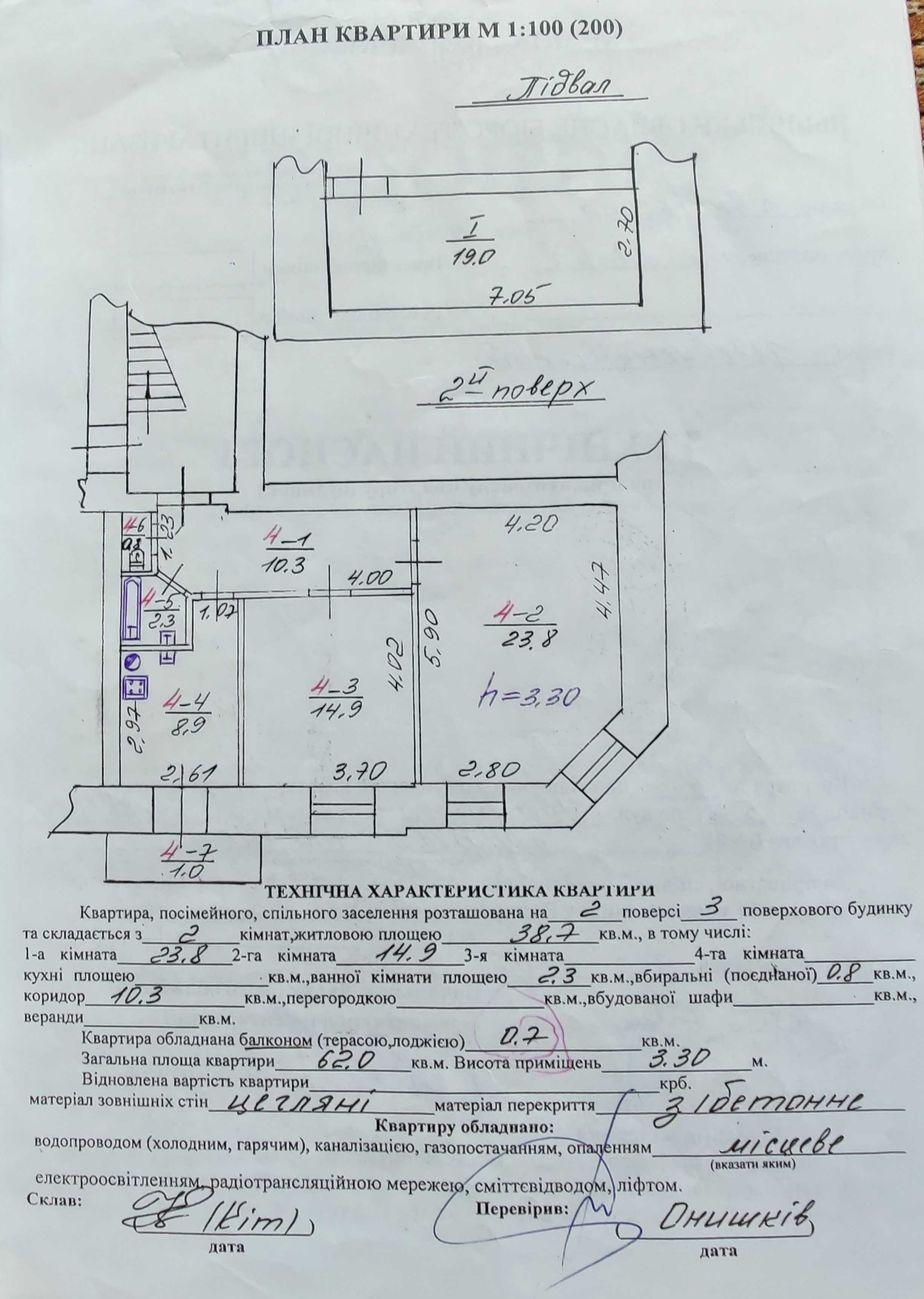 ПЛАН КВАРТИРИ М 1:100 (200)
Підвал
I
19.0
2.70
7.05
2й поверх
4-6
0.8
1.23
4-1
10.3
4.00
4.20
4.47
4-5
2.3
1.07
4-2
23.8
5.90
4.02
4-3
14.9
h=3,30
4-4
8,9
2,97
2,61
3,70
2,80
4-7
1.0
ТЕХНІЧНА ХАРАКТЕРИСТИКА КВАРТИРИ
Квартира, посімейного, спільного заселення розташована на 2 поверсі 3 поверхового будинку
та складається з 2 кімнат,житловою площею 38,7 кв.м., в тому числі:
1-а кімната 23,8 2-га кімната 14.9 3-я кімната 4-та кімната
кухні площею кв.м.,ванної кімнати площею 2.3 кв.м.,вбиральні (поєднаної) 0.8 кв.м.,
коридор 10.3 кв.м.,перегородкою кв.м.,вбудованої шафи кв.м.,
веранди кв.м.
Квартира обладнана балконом (терасою,лоджією) 0.7 кв.м.
Загальна площа квартири 62.0 кв.м. Висота приміщень 3.30 м.
Відновлена вартість квартири крб.
матеріал зовнішніх стін цегляні матеріал перекриття з/бетонне
Квартиру обладнано:
водопроводом (холодним, гарячим), каналізацією, газопостачанням, опаленням місцеве
(вказати яким)
електроосвітленням, радіотрансляційною мережею, сміттєвідводом, ліфтом.
Склав: (Кіт) Перевірив: Онишків
дата дата